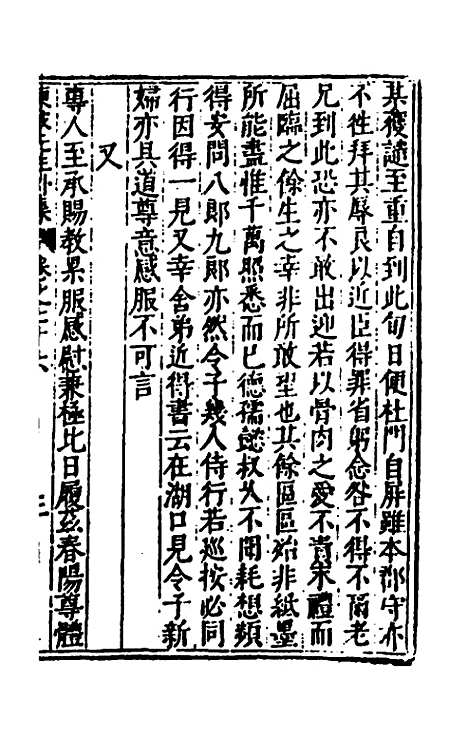 其獲譴至重自到此旬日便杜門自屏雖本郡守亦
不徃拜其辱良以近臣得罪省躬念咎不得不爾老
兄到此恐亦不敢出迎若以骨肉之愛不責末禮而
屈臨之餘生之幸非所敢望也其餘區區殆非紙墨
所能盡惟千萬照悉而已德孺懿叔久不聞耗想頻
得安問八郎九郎亦然令子幾人侍行若巡按必同
行因得一見又幸舍弟近得書云在湖口見令子新
婦亦具道尊意感服不可言
又
專人至承賜教累服感慰兼極比日履玆春陽尊體
東坡先生外集 卷之七十六